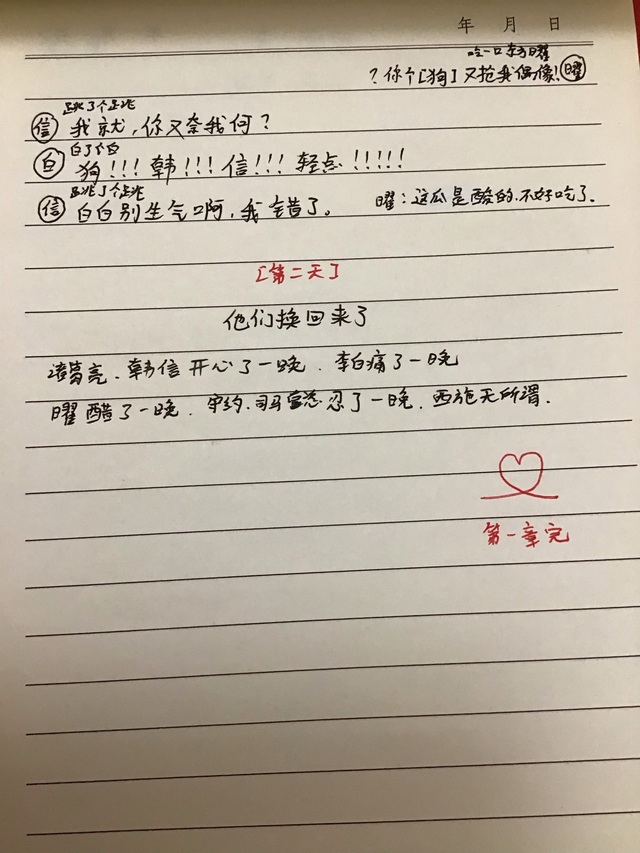 年 月 日
吃一口东方曜
？你个[狗]又抢我偶像！曜
跳了个跳
信 我就，你又奈我何？
白了个白
白 狗！！！韩！！！信！！！轻点！！！！！
跳了个跳
信 白白别生气啊，我错了。 曜：这瓜是酸的，不好吃了。
[第二天]
他们换回来了
诸葛亮、韩信开心了一晚、李白痛了一晚
曜醋了一晚、守约、司马懿忍了一晚、西施无所谓.
第一章完